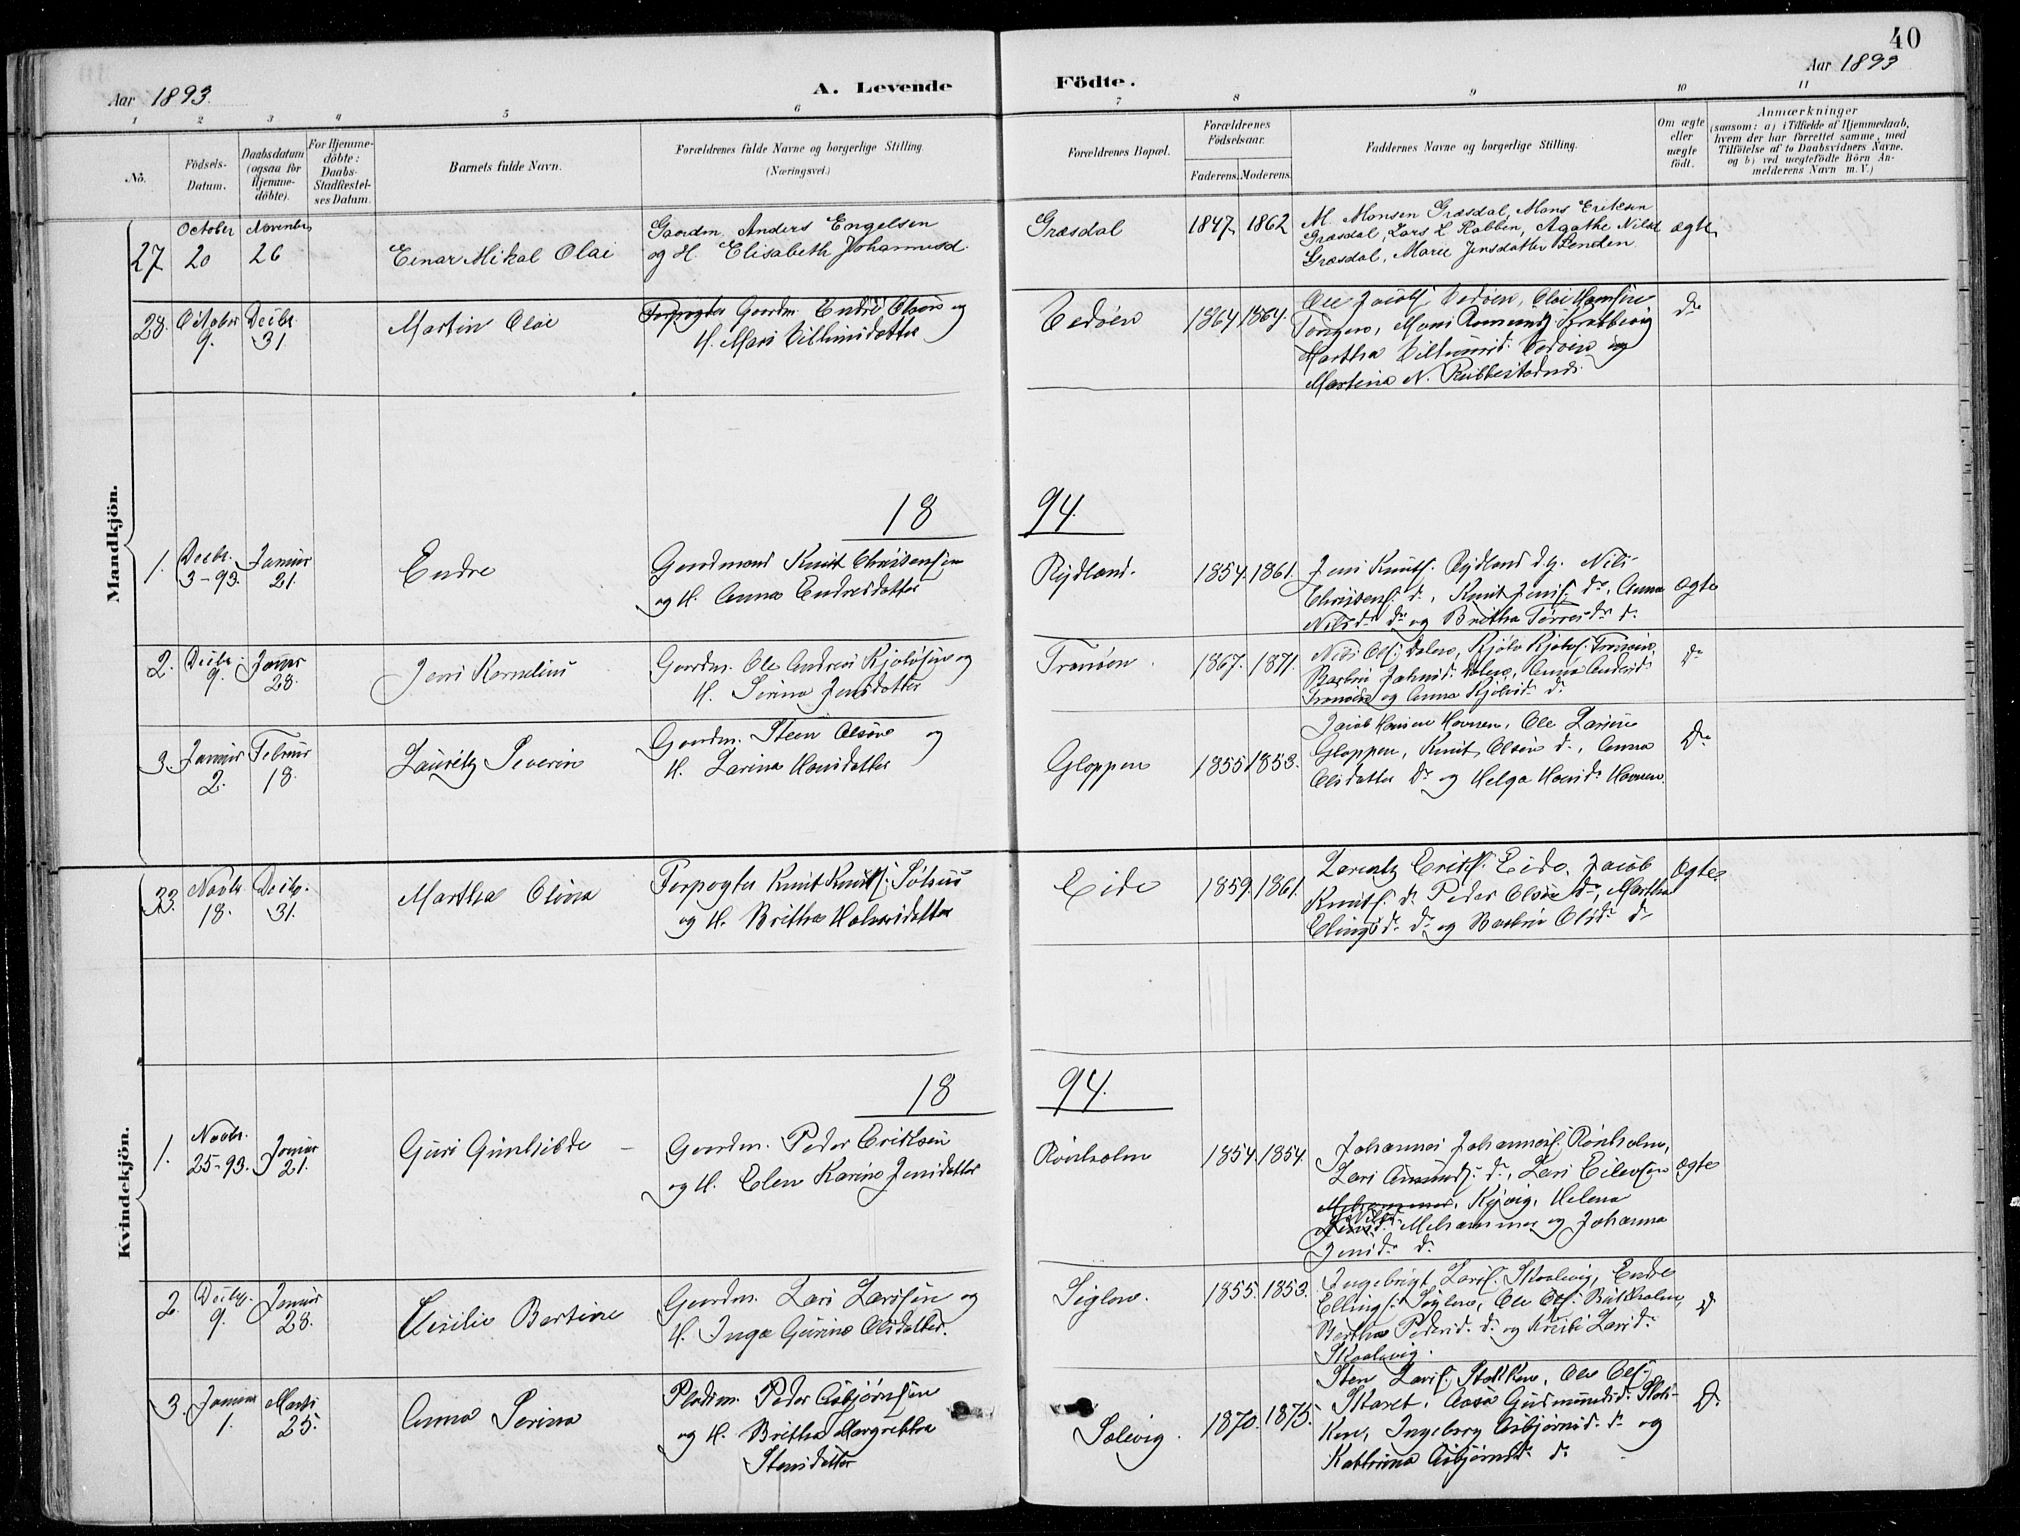 40
Aar 1893.
A. Levende Födte.
Aar 1893
1 2 3 4 5 6 7 8 9 10 11
No.
Födsels-
Datum.
Daabsdatum
(ogsaa for
Hjemme-
döbte).
For Hjemme-
döbte:
Daabs-
Stadfæstel-
ses Datum.
Barnets fulde Navn.
Forældrenes fulde Navne og borgerlige Stilling.
(Næringsvei.)
Forældrenes Bopæl.
Forældrenes
Födselsaar.
Faderens. Moderens.
Faddernes Navne og borgerlige Stilling.
Om ægte
eller
uægte
födt.
Anmærkninger
(saasom: a) i Tilfælde af Hjemmedaab,
hvem der har forrettet samme, med
Tilföielse af to Daabsvidners Navne.
og b) ved uægtefödte Börn An-
melderens Navn m. V.)
Mandkjön.
27
October
20
November
26
Einar Mikal Olai
Gaardm. Anders Engelsen
og H. Elisabeth Johannesd.
Græsdal
1847 1862
M. Monsen Græsdal, Mons Eriksen
Græsdal, Lars L Rabben, Agathe Nilsd
Græsdal, Marie Jensdatter Lenden
ægte
28.
October
9.
Decbr.
31
Martin Olai
Forpagter Gaardm. Endre Olsen og
H. Mari Villumsdatter
Vedöen
1864 1864.
Ole Jacobs. Vedöen, Olai Hansen
Martha Villumsd. Vedöen og
Martina N. Rubbestadnds.
do
18 94
1.
Decbr.
3-93.
Januar
21.
Endre
Gaardmand Knut Christensen
og H. Anna Endresdatter
Rydland.
1854. 1861.
Jens Knuts. Rydland d.y. Nils
Christens. do, Knut Jens. do, Anna
Nilsdr. do og Britha Tørresdr. do
ægte
2.
Decbr.
9.
Januar
28.
Jens Kornelius
Gaardm. Ole Andreas Kjølvsen og
H. Serina Jensdatter
Tranöen.
1867. 1871.
Nils Ols. Dalen, Kjølv Kjølvs. Tranöen,
Barbra Johnsd. Dalen, Anna Andersd.
Tranöen og Anna Kjølvsd. do
do
3.
Januar
2.
Februar
18.
Lauritz Severin
Gaardm. Steen Olsen og
H. Larina Hansdatter
Gloppen
1855 1853.
Jacob Hansen Havnen, Ole Larsen
Gloppen, Knut Olsen do, Anna
Olsdatter do og Helga Hansdr. Havnen.
do
33.
Novbr.
18.
Decbr.
31.
Martha Olina
Forpagter Knut Knuts.
og H. Britha Halvorsdatter
Eide
1859. 1861.
Lorentz Eriks. Eide, Jacob
Knuts. do Peder Olsen do, Martha
Elingsdr. do og Barbra Olsdr. do
Ægte.
Kvindekjön.
18 94.
1.
Novbr.
25-93.
Januar
21.
Guri Gunhilde
Gaardm. Peder Eriksen
og H. Elen Karine Jensdatter
Rönholm
1854. 1854.
Johannes Johannes. Rönholm,
Lars Amunds. do, Lars Eilevsen
Melhammer, Kyvig, Helena
Nilsd. Melhammer og Johanna
Jensdr. do
ægte
2.
Decbr.
9.
Januar
28.
Cesilie Bertine
Gaardm. Lars Larssen og
H. Inga Gurina Olsdatter.
Siglen.
1855. 1853.
Ingebrigt Lars. Skaalevig, Endre
Ellings. Siglen, Ole Ols. Bukholm,
Bertha Pedersd. do og Larsdr.
Skaalevig.
do
3.
Januar
1.
Marts
25.
Anna Serina
Pladsm. Peder Asbjørnsen
og H. Britha Margretha
Stensdatter
Solevig.
1870. 1875.
Sten Lars. Stokken, Ole Ols.
Skaret, Aasa Gudmundsd. Stok-
ken, Ingeborg Asbjørnsd. do og
Kathrina Asbjørnsdr. do
do